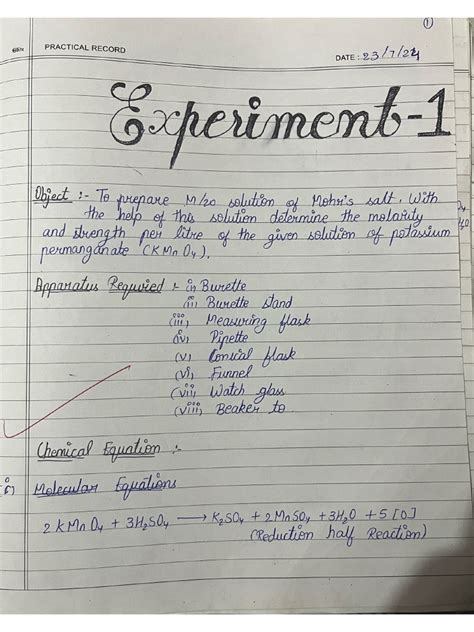 1
PRACTICAL RECORD
DATE : 23/7/24
Experiment-1
Object :- To prepare M/20 solution of Mohr's salt. With
the help of this solution determine the molarity
and strength per litre of the given solution of potassium
permanganate (KMnO4).
Apparatus Required :- (i) Burette
(ii) Burette stand
(iii) Measuring flask
(iv) Pipette
(v) Conical flask
(vi) Funnel
(vii) Watch glass
(viii) Beaker to
Chemical Equation :-
Molecular Equations
2 KMnO4 + 3H2SO4 ⟶ K2SO4 + 2MnSO4 + 3H2O + 5[O]
(Reduction half Reaction)